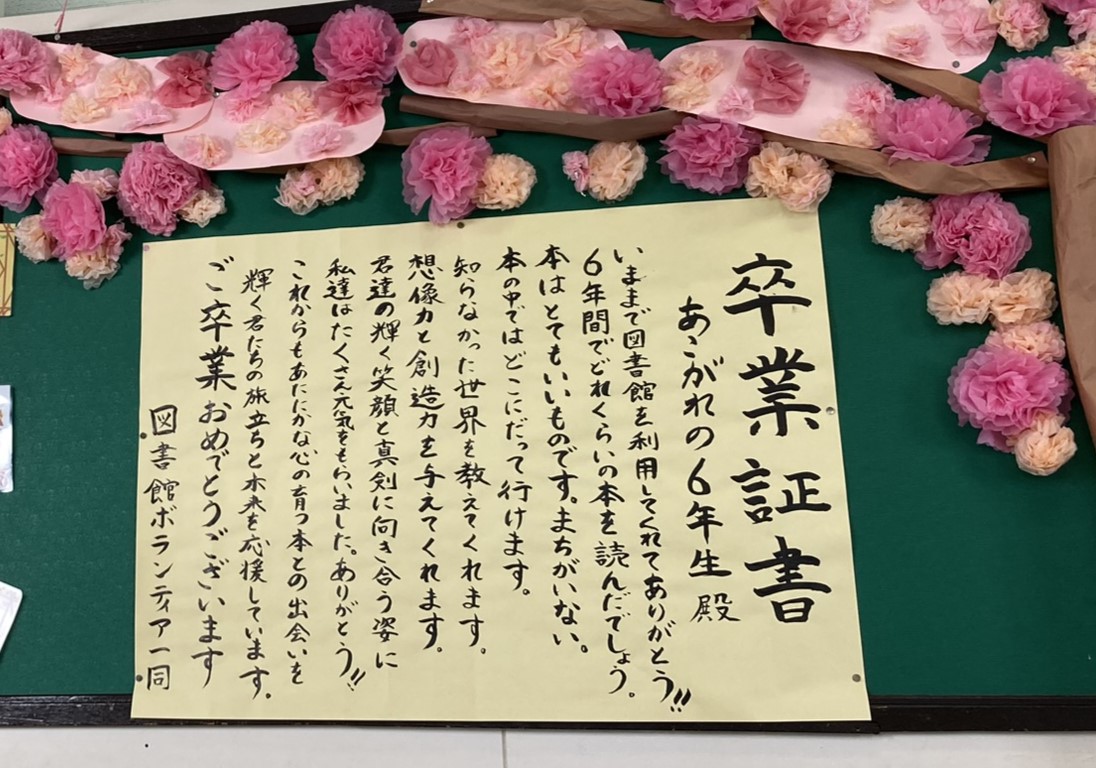 卒業証書
あこがれの6年生 殿
いままで図書館を利用してくれてありがとう!!
6年間でどれくらいの本を読んだでしょう。
本はとてもいいものです。まちがいない。
本の中ではどこにだって行けます。
知らなかった世界を教えてくれます。
想像力と創造力を与えてくれます。
君達の輝く笑顔と真剣に向き合う姿に
私達はたくさん元気をもらいました。ありがとう!!
これからもあたたかな心の育つ本との出会いを
輝く君たちの旅立ちと未来を応援しています。
ご卒業おめでとうございます
図書館ボランティア一同